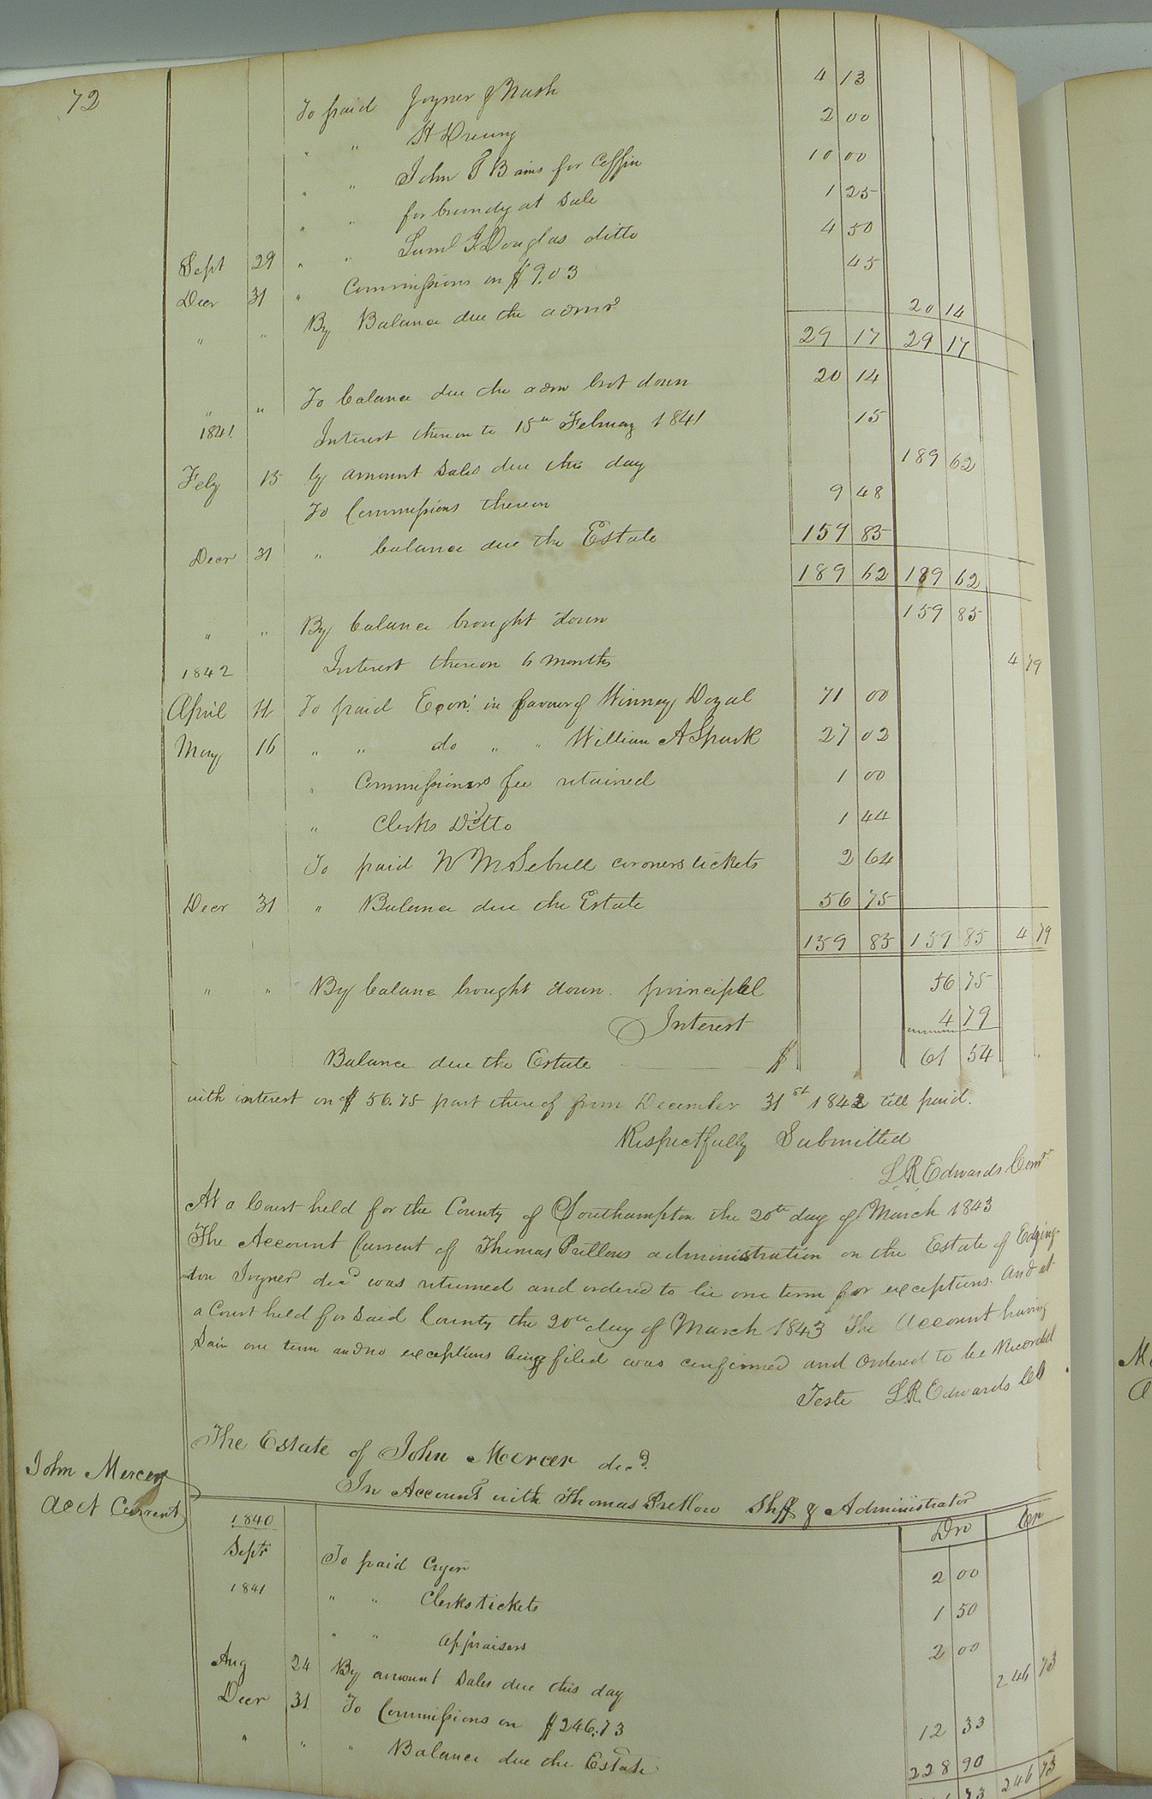 72
To paid Joyner & Nash 4 13
" " H Drewry 2 00
" " John T Bains for Coffin 10 00
" " for brandy at Sale 1 25
Sept 29 " " Saml J Douglas ditto 4 50
Decr 31 " Commissions on $9.03 45
" " By Balance due the admr 20 14
29 17 29 17
" " To balance due the adm brot down 20 14
1841 Interest thereon to 15th February 1841 15
Feby 15 by amount Sales due this day 189 62
To Commissions thereon 9 48
Decr 31 " balance due the Estate 159 85
189 62 189 62
" " By balance brought down 159 85
1842 Interest thereon 6 months 4 79
April 11 To paid Exon: in favour of Winney Doyal 71 00
May 16 " " do " " William A Spark 27 02
" Commissioners fee retained 1 00
" Clerks Ditto 1 44
To paid W M Sebrell coroners tickets 2 64
Decr 31 " Balance due the Estate 56 75
159 85 159 85 4 79
" " By balance brought down principal 56 75
Interest 4 79
Balance due the Estate $ 61 54
with interest on $56.75 part thereof from December 31st 1842 till paid.
Respectfully Submitted
L R Edwards Comr
At a Court held for the County of Southampton the 20th day of March 1843
The Account Current of Thomas Pretlows administration on the Estate of Edging-
ton Joyner decd was returned and ordered to lie one term for exceptions. And at
a Court held for said County the 20th day of March 1843 The Account having
lain one term and no exceptions being filed was confirmed and Ordered to be Recorded
Teste L.R. Edwards Clk
John Mercer
Acct Current
The Estate of John Mercer decd.
In Account with Thomas Pretlow Shff & Administrator
Dr Cr
1840
Septr To paid Cryer 2 00
1841 " " Clerks tickets 1 50
" " appraisers 2 00
Aug 24 By amount Sales due this day 246 73
Decr 31 To Commissions on $246.73 12 33
" " " Balance due the Estate 228 90
73 246 73